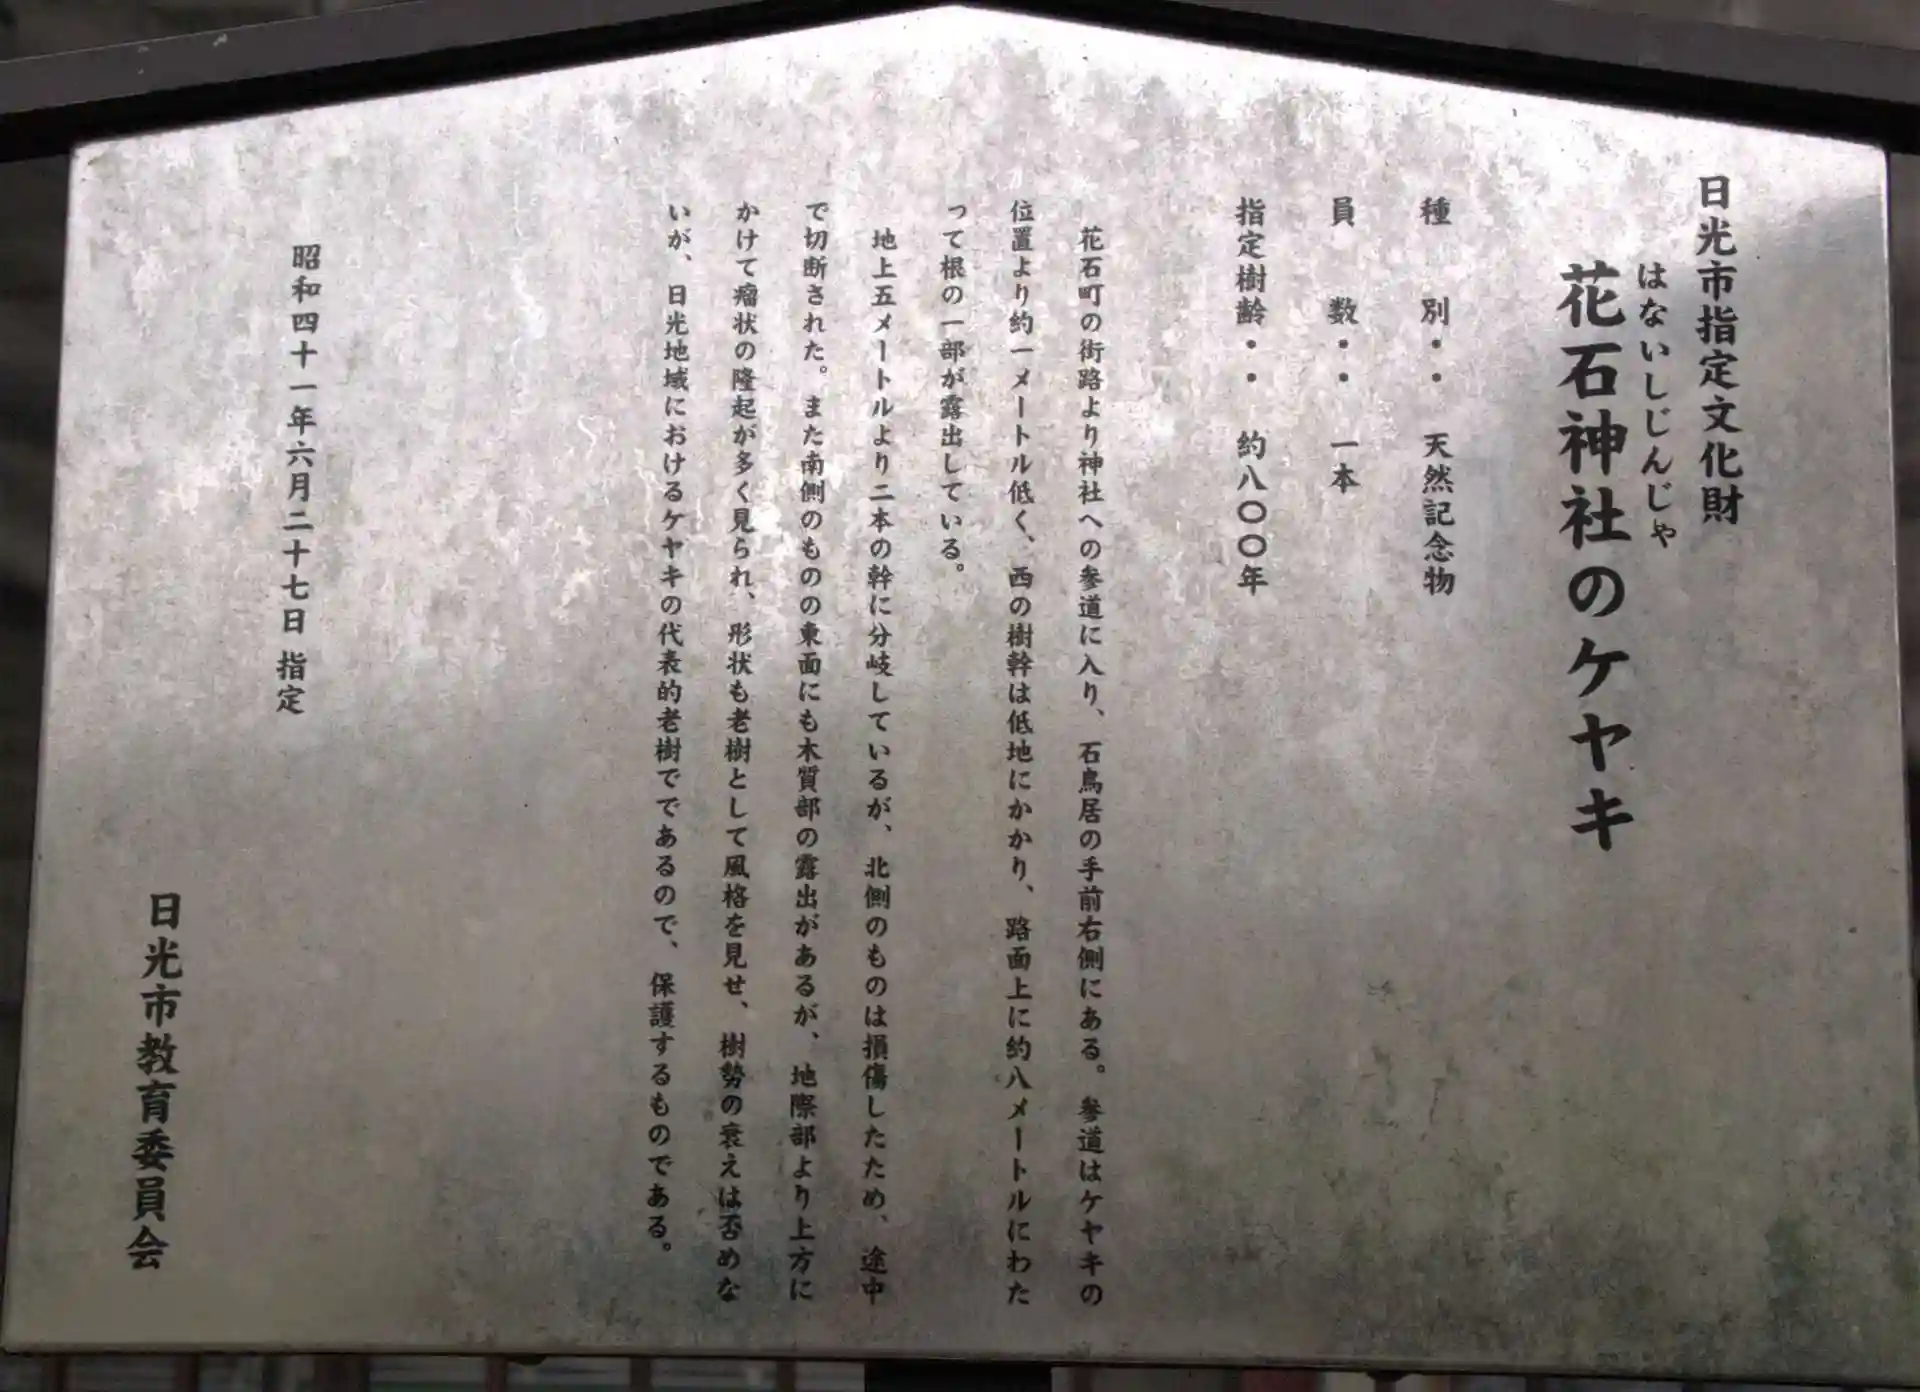 日光市指定文化財
はないしじんじゃ
花石神社のケヤキ
種　別・・　天然記念物
員　数・・　一本
指定樹齢・・　約八〇〇年
花石町の街路より神社への参道に入り、石鳥居の手前右側にある。参道はケヤキの
位置より約一メートル低く、西の樹幹は低地にかかり、路面上に約八メートルにわた
って根の一部が露出している。
地上五メートルより二本の幹に分岐しているが、北側のものは損傷したため、途中
で切断された。また南側のものの東面にも木質部の露出があるが、地際部より上方に
かけて瘤状の隆起が多く見られ、形状も老樹として風格を見せ、樹勢の衰えは否めな
いが、日光地域におけるケヤキの代表的老樹でであるので、保護するものである。
昭和四十一年六月二十七日 指定
日光市教育委員会